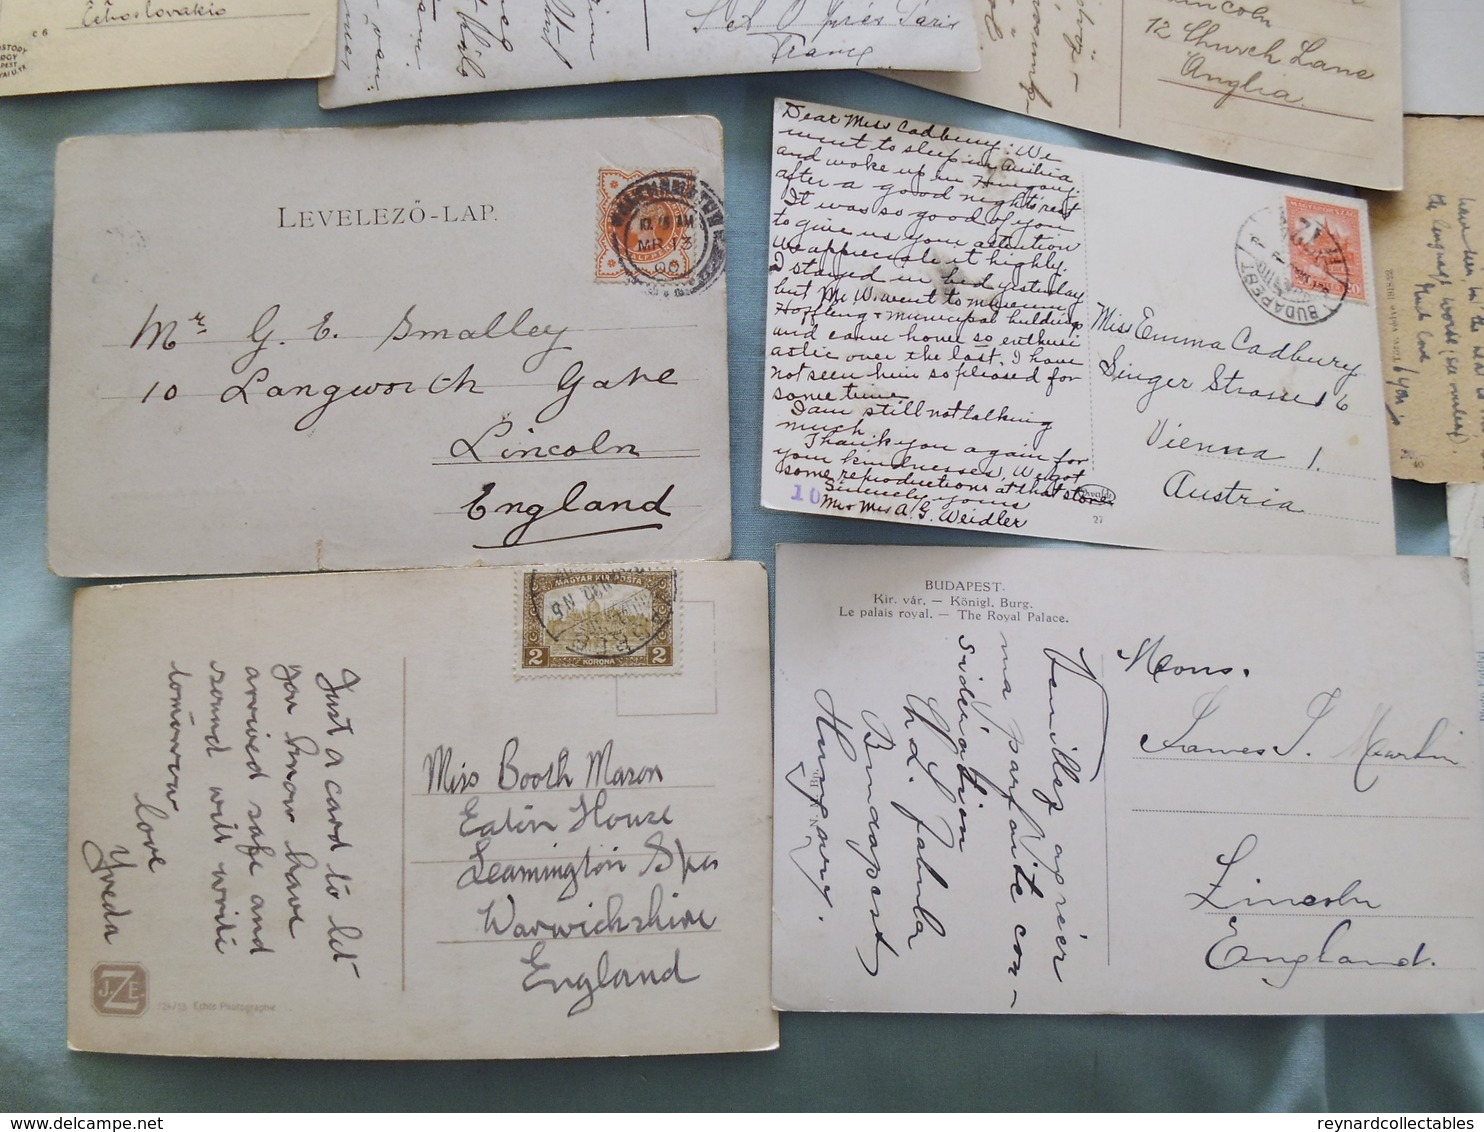 c 6
Čehoslovakia
France
Lincoln
12 Church Lane
Anglia.
LEVELEZŐ-LAP.
MR 13
00
Mr G. E. Smalley
10 Langworth Gate
Lincoln
England
Dear Miss Cadbury: We
went to sleep in Austria
and woke up in Hungary.
after a good night's rest
It was so good of you
to give us your attention
We appreciate it highly.
I stayed in bed yesterday
but Mr W. went to museum,
& Municipal buildings
and came home so enthusi
astic over the last. I have
not seen him so pleased for
some time.
I am still not talking
much
Thank you again for
your kindnesses. We got
some reproductions at that store
Sincerely yours
Mr & Mrs A. G. Weidler
10
27
BUDAPEST
Miss Emma Cadbury
Singer Strasse 16
Vienna 1.
Austria
MAGYAR KIR. POSTA
2 KORONA 2
Just a card to let
you know have
arrived safe and
sound will write
tomorrow
love
Yveda
J.Z.E.
Echte Photographie
Miss Booth Mason
Eaton House
Leamington Spa
Warwickshire
England
BUDAPEST.
Kir. vár. — Königl. Burg.
Le palais royal. — The Royal Palace.
Veuillez agréer
ma parfaite con-
sidération
Budapest
Hungary.
Mons.
James T. Martin
Lincoln
England.
reynardcollectables